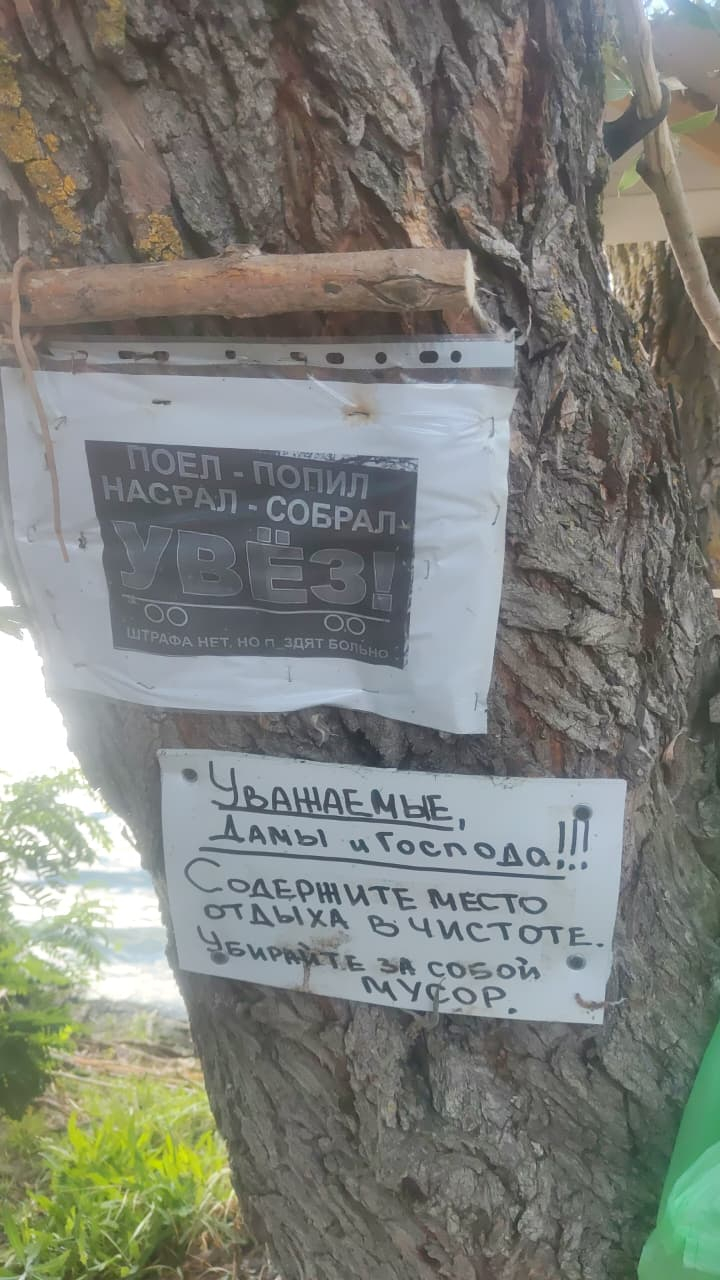 ПОЕЛ - ПОПИЛ
НАСРАЛ - СОБРАЛ
УВЁЗ!
ШТРАФА НЕТ, НО П_ЗДЯТ БОЛЬНО
УВАЖАЕМЫЕ,
ДАМЫ и ГОСПОДА!!!
СОДЕРЖИТЕ МЕСТО
ОТДЫХА В ЧИСТОТЕ.
УБИРАЙТЕ ЗА СОБОЙ
МУСОР.